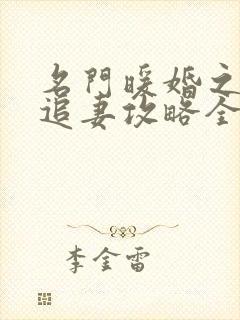 名門暖婚之
追妻攻略全
李金雷